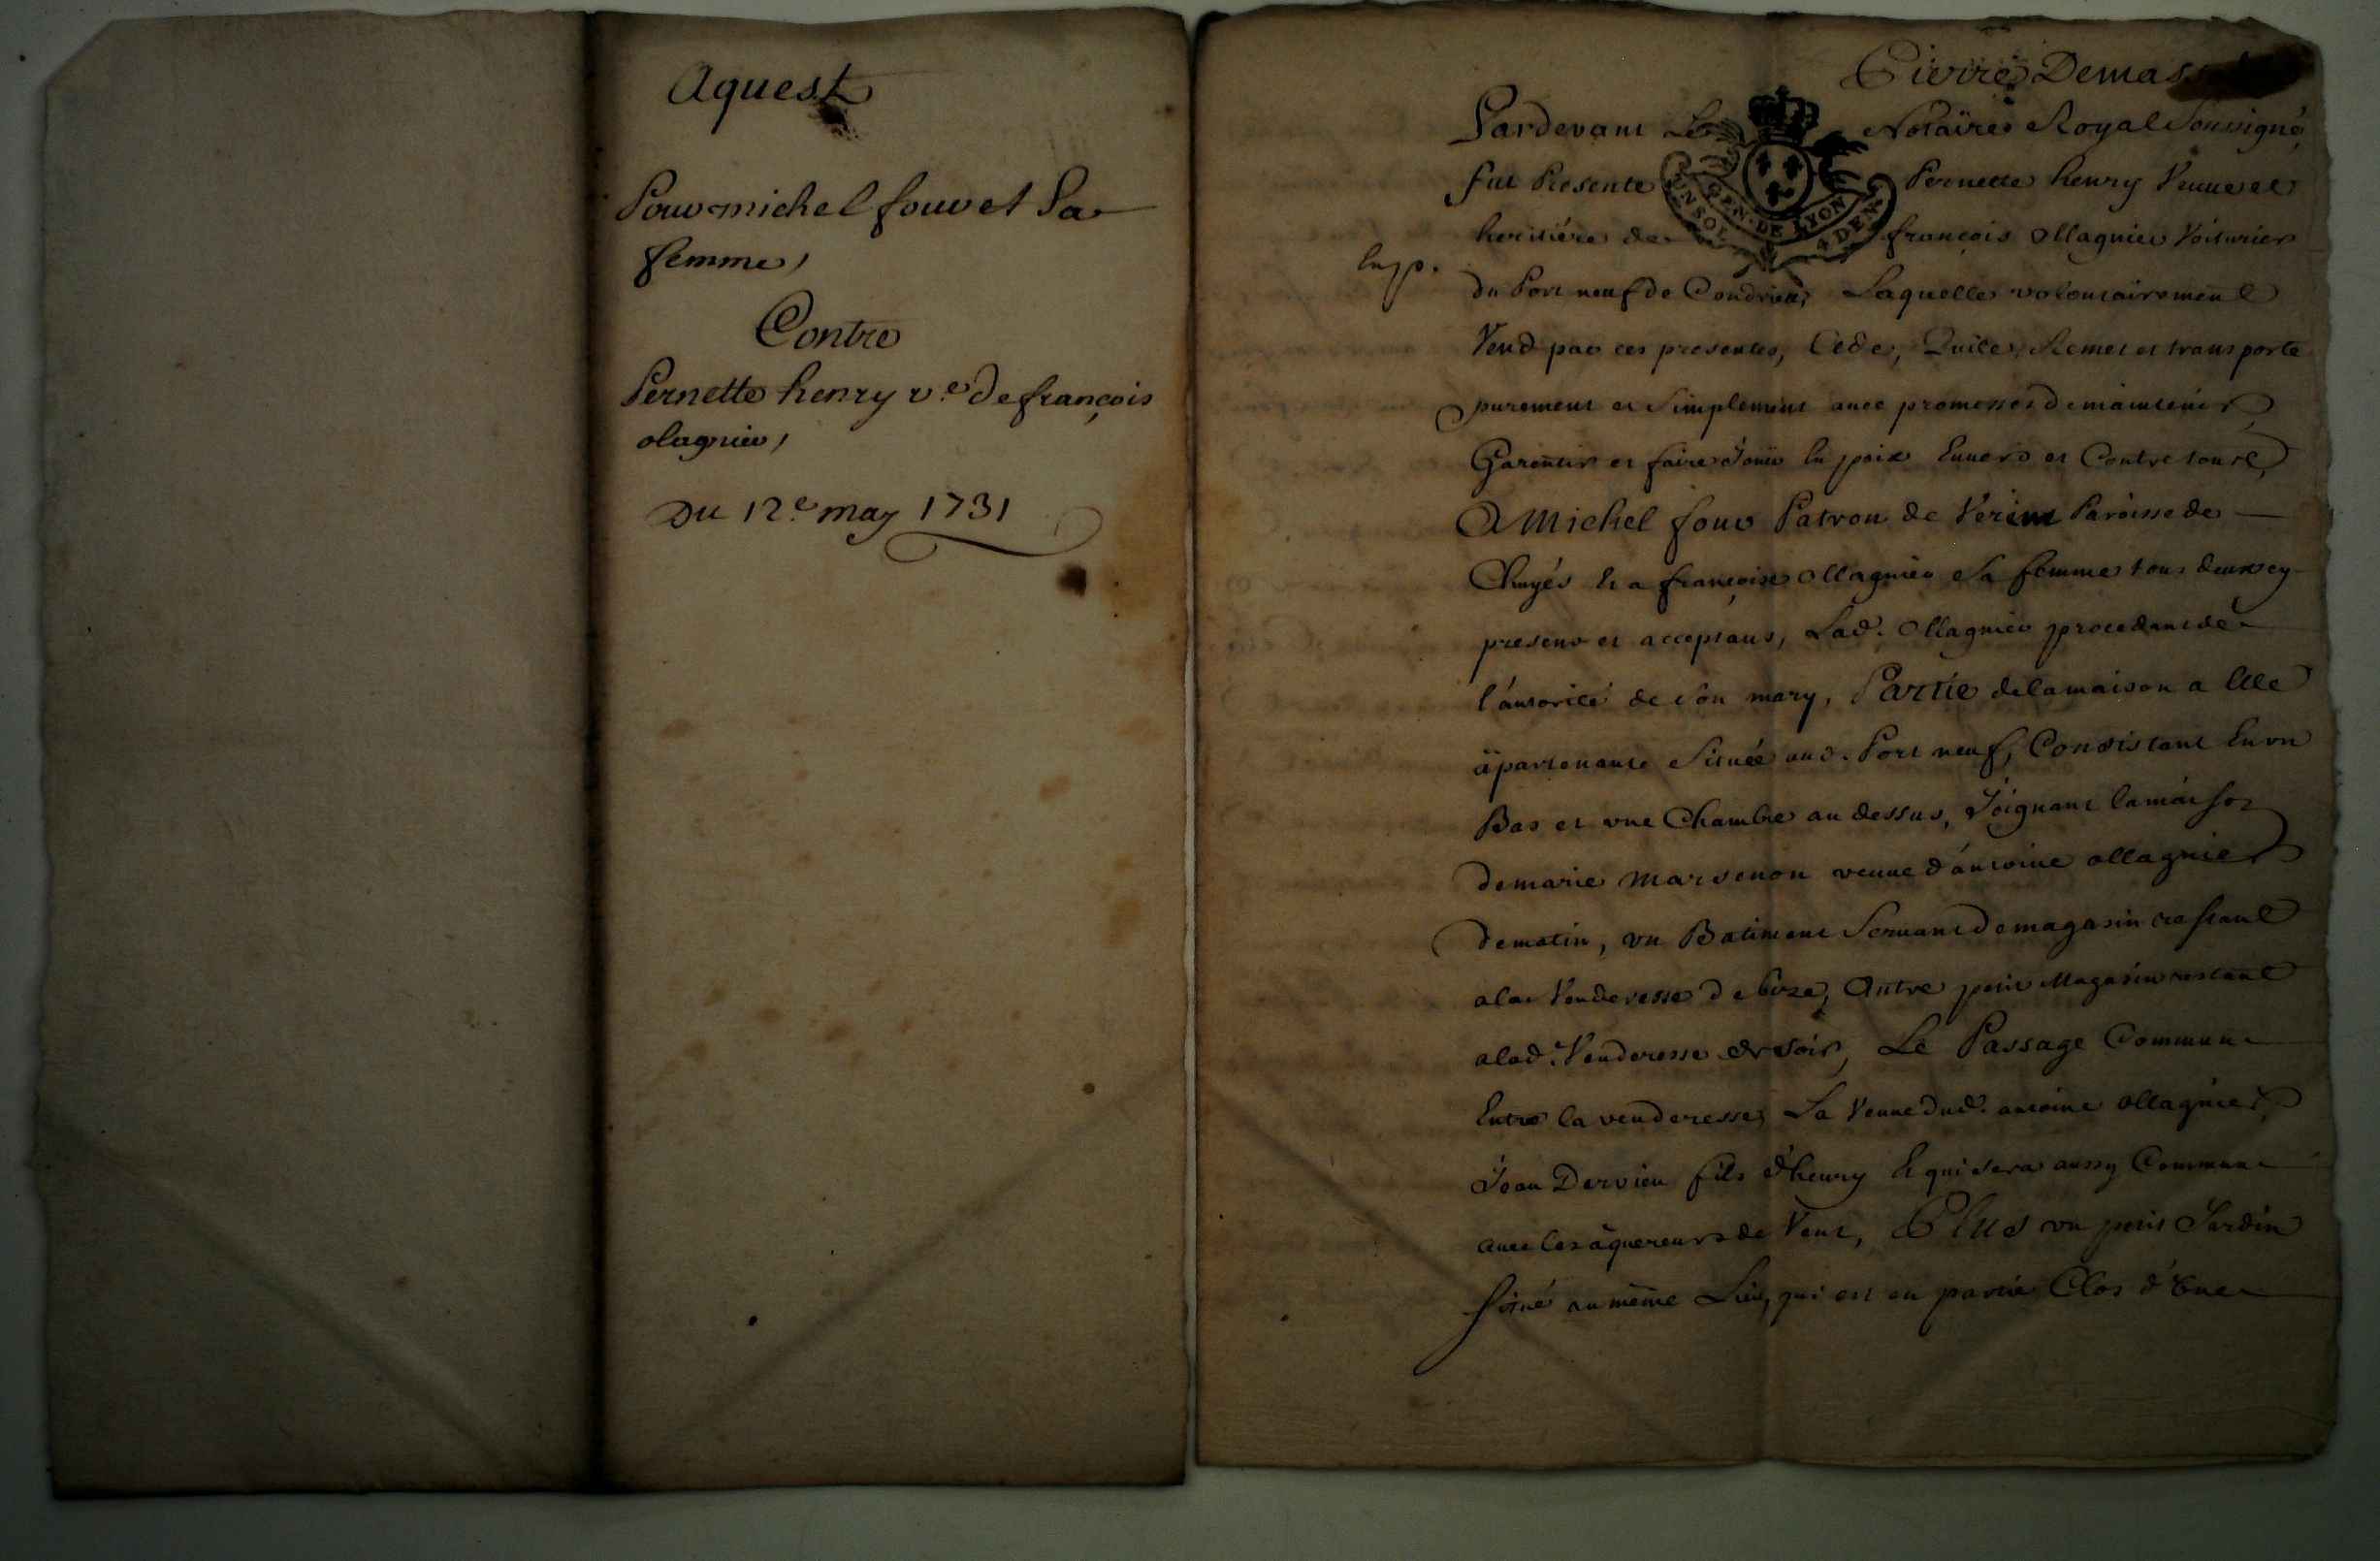 Aquest
Pour michel four et Sa
femme,
Contre
Pernette henry v.e de françois
olagnier,
Du 12.e may 1731
Pierre Demas
Pardevant Le Notaire Royal Soussigné,
GEN. DE LYON
UN SOL 4 DEN.
fut Presente Pernette henry Veuue et
heritiére de françois ollagnier Voiturier
Exp.
du Port neuf de Condrieu, Laquelle volontairement
Vend par ces presentes, Cede, Quite, Remet et transporte
purement et Simplement auec promesses de maintenir
Garentir et faire Joüir En paix Enuers et Contre tous,
A Michel four Patron de Verin Paroisse de
Chuyés Et a françoise ollagnier Sa femme tous deux cy
presens et acceptans, Lad. ollagnier procedant de
l'autorité de Son mary, Partie de la maison a Elle
äpartenante Située aud. Port neuf, Consistant En vn
Bas et vne Chambre au dessus, Joignant la maison
de marie marvenon veuue d'antoine ollagnier
de matin, vn Batiment Seruant de magasin restant
a la Venderesse de bize, Autre petit Magasin restant
a lad. Venderesse de soir, Le Passage Commun
Entre la venderesse, La Veuue dud. antoine ollagnier,
Jean Dervieu fils d'henry Et qui sera aussy Commun
auec les äquereurs de Vent, Plus vn petit Jardin
Situé au même Lieu, qui est en partie Clos d'vne